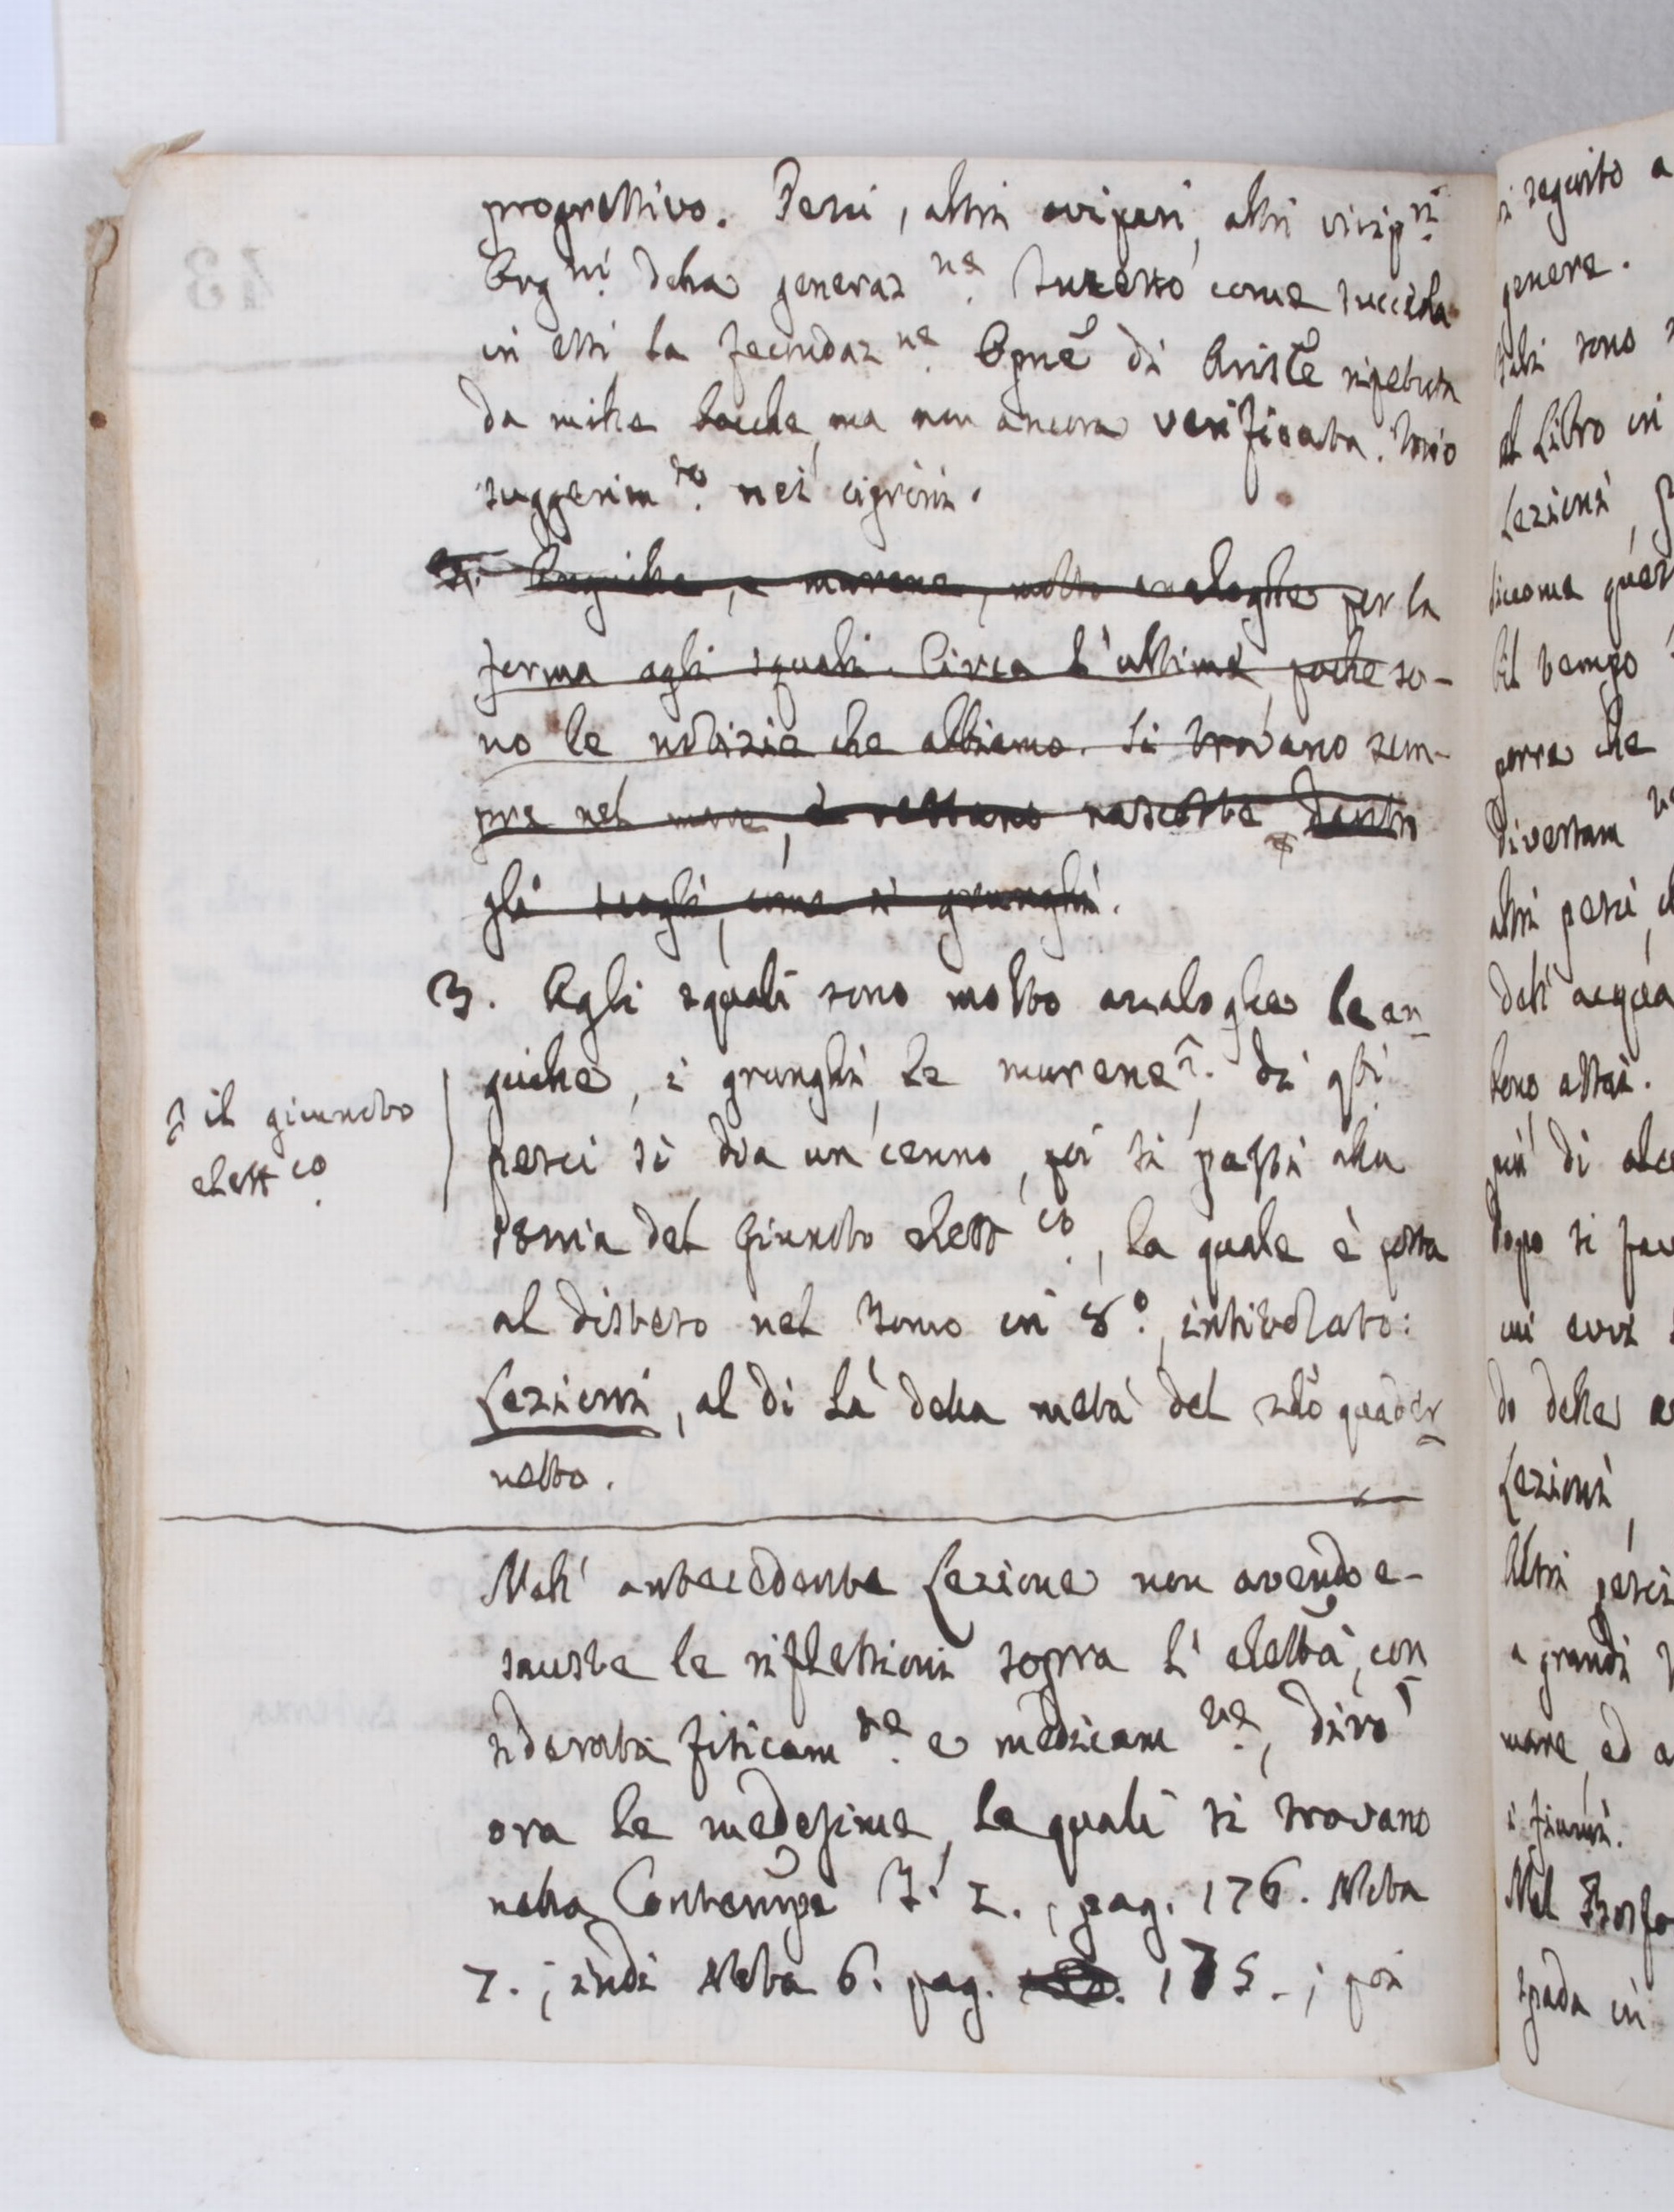 progressivo. Pesci, altri ovipari, altri vivip.ri
Org.ni della generaz.ne Suressò come succeda
in essi la fecundaz.ne. Opnẽ di Aristẽ ripetuta
da mille bocche, ma non ancora verificata. Mio
suggerim.to nei ciprini.
2. Anguille, e murene, molto analoghe per la
forma agli squali. Circa l'ultime, poche so-
no le notizie che abbiamo. Si trovano sem-
pre nel mare, e restano nascoste dentro
gli scogli, come i grunghi.
3. Agli squali sono molto analoghe le an-
guille, i grunghi, le murene. Di qsti
pesci si dia un cenno, poi si passi alla
storia del Ginnoto elett.co, la quale è posta
al disteso nel tomo in 8.º, intitolato:
Lezioni, al di là della metà del sudº quader-
netto.
il ginnoto
elett.co
Nell' antecedente Lezione non avendo e-
sauste le riflessioni sopra l'elettà, con
siderata fisicam.te e medicam.te, dirò
ora le medesime, le quali si trovano
nella Contempe T. I., pag. 176. Nota
7.; indi Nota 6. pag. 175.; poi
43
si seguito a
genere.
tali sono
al Libro in
Lezioni,
siccome quest
bil tempo
porre che
diversam
altri pesci,
dell' acqua
sono assai.
più di alc
dopo si fac
mi
do delle
Lezioni,
Altri pesci
a grandi
mare, ed a
i fiumi.
Nel
spada in